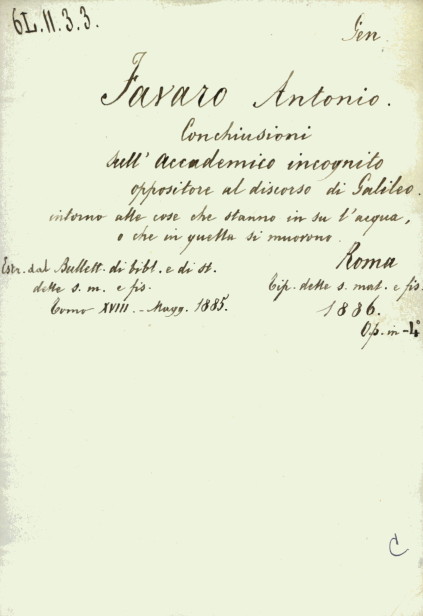 6L.11.3.3.
Gen.
Favaro Antonio.
Conchiusioni
sull' Accademico incognito
oppositore al discorso di Galileo
intorno alle cose che stanno in su l'acqua,
o che in quella si muovono.
Estr. dal Bullett. di bibl. e di st.
delle s. m. e fis.
Tomo XVIII. - Magg. 1885.
Roma
Tip. delle s. mat. e fis.
1886.
Op. in -4°
C